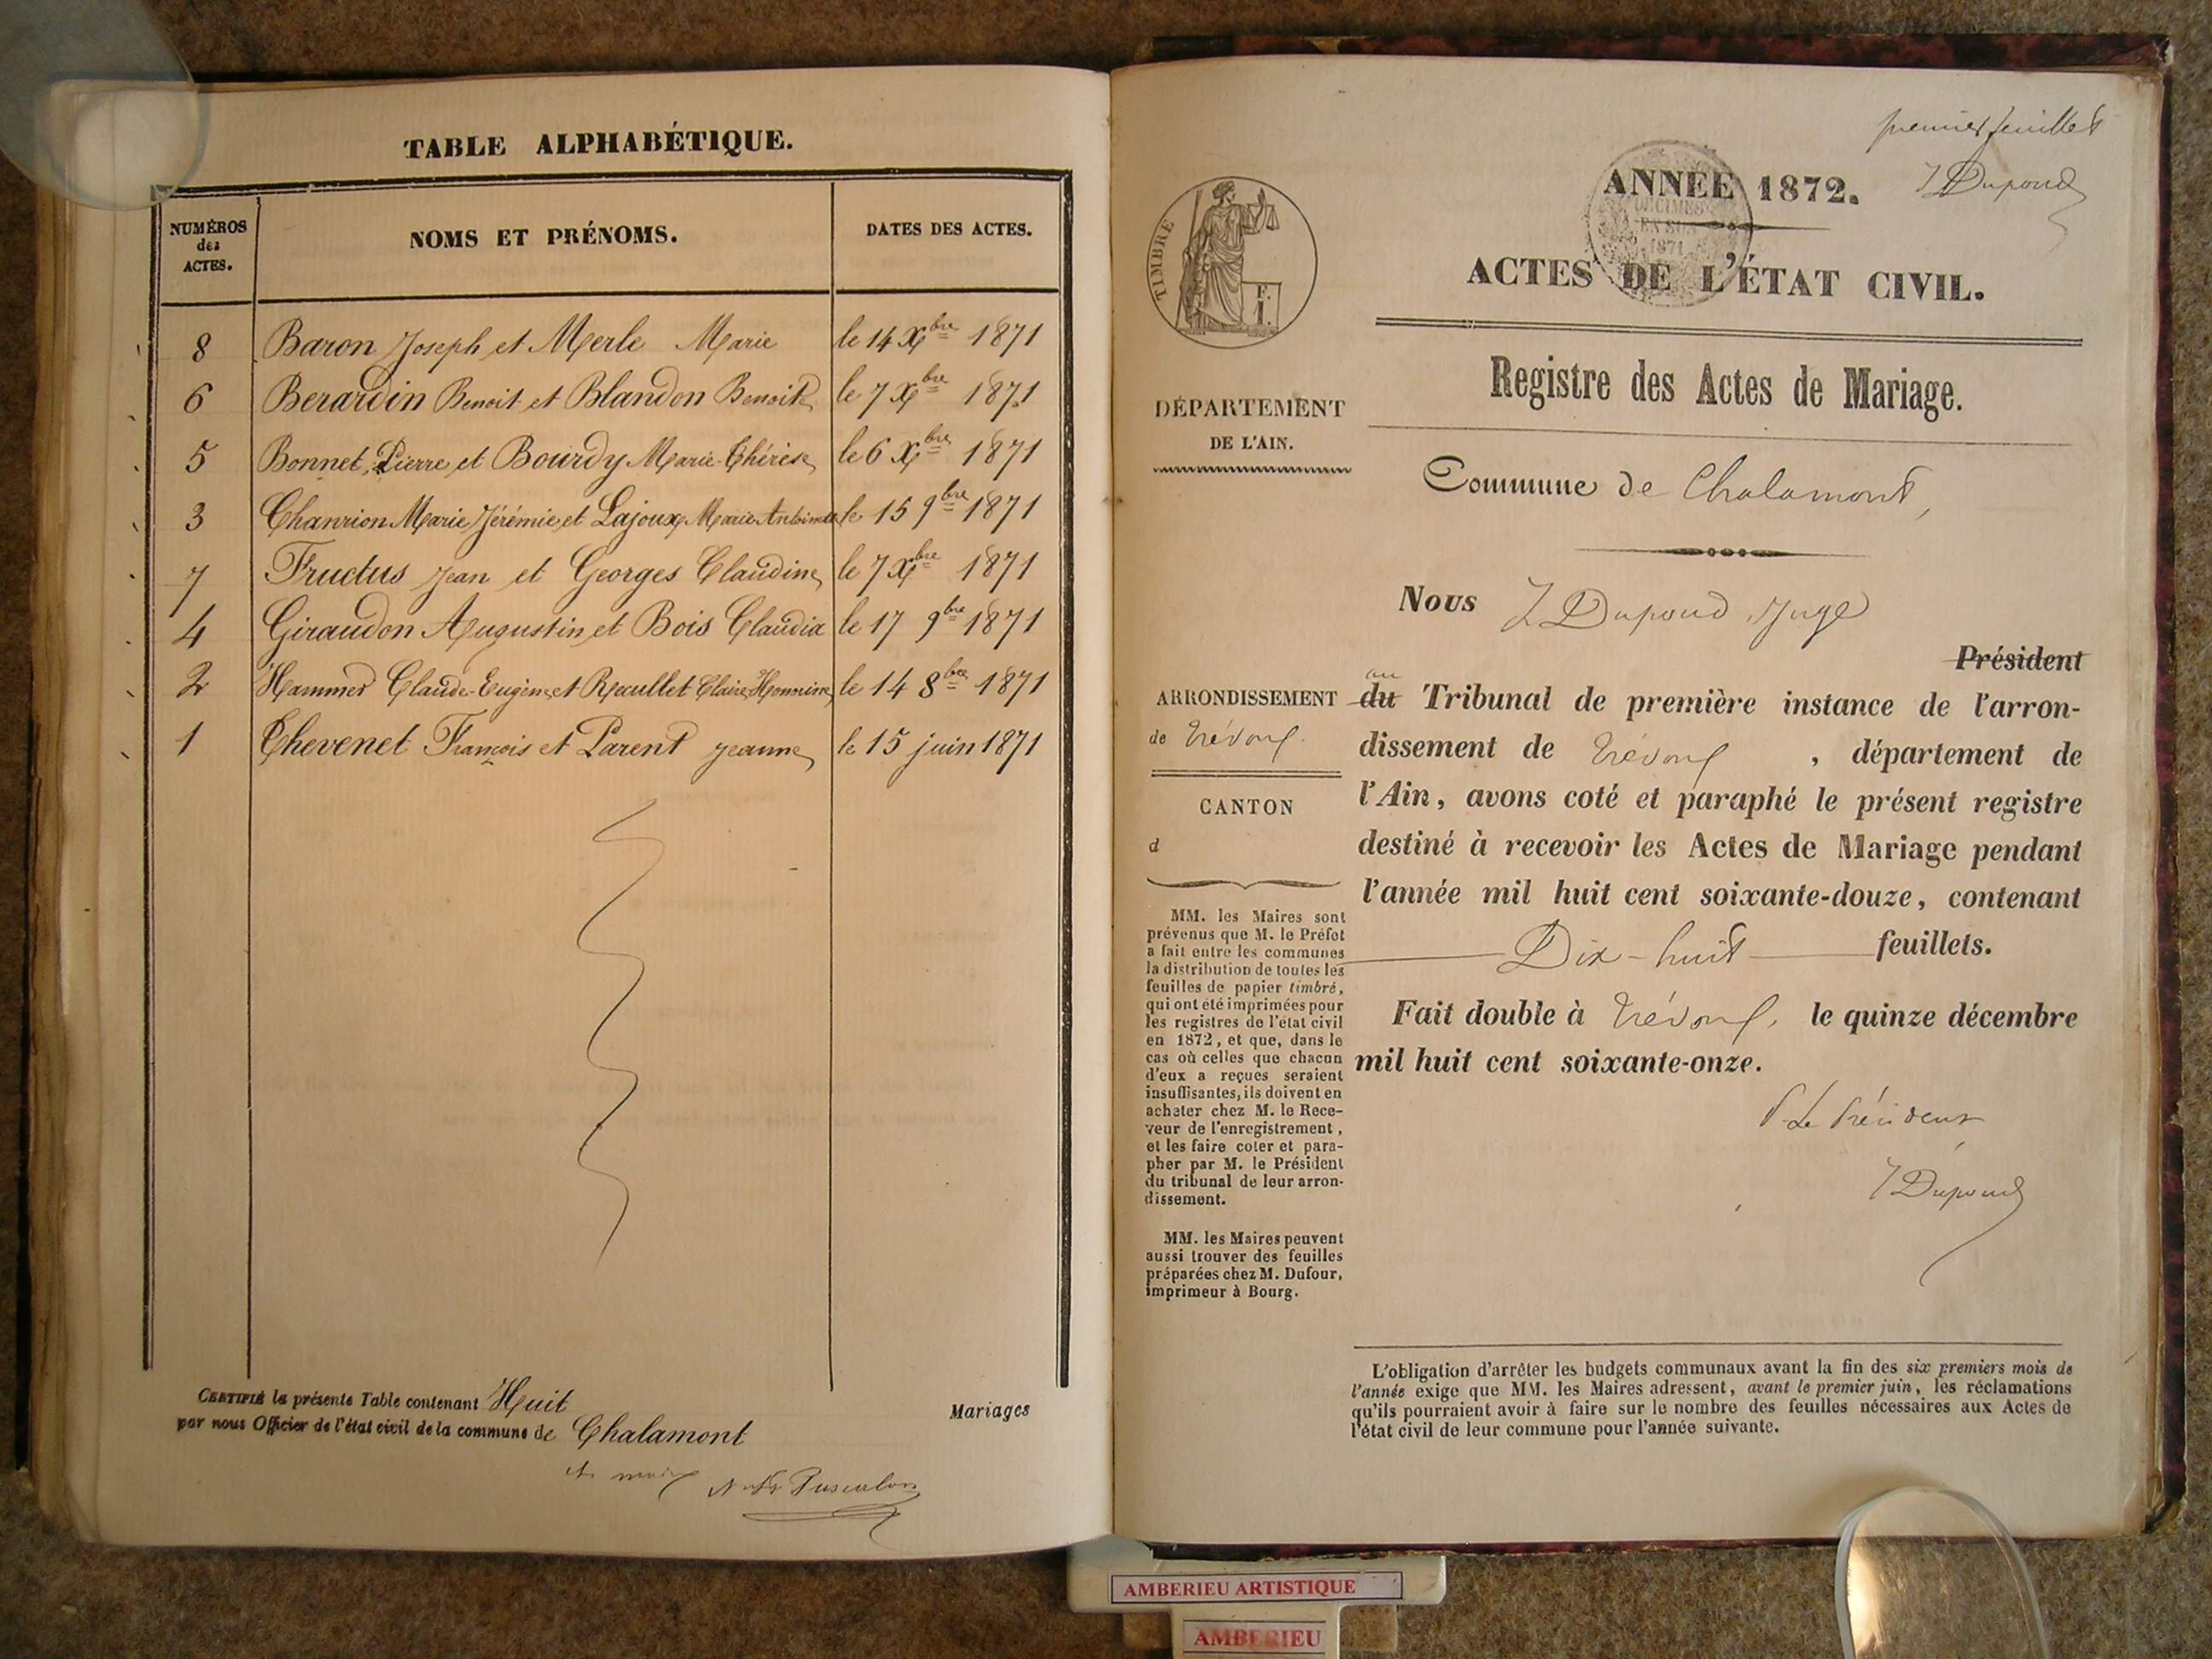 TABLE ALPHABÉTIQUE.
NUMÉROS
des
ACTES.
NOMS ET PRÉNOMS.
DATES DES ACTES.
8 Baron Joseph et Merle Marie le 14 Xbre 1871
6 Berardin Benoit et Blandon Benoite le 7 Xbre 1871
5 Bonnet, Pierre et Bourdy Marie-Thérèse le 6 Xbre 1871
3 Chanrion Marie Jérémie et Lajoux Marie Antoinette le 15 9bre 1871
7 Fructus Jean et Georges Claudine le 7 Xbre 1871
4 Giraudon Augustin et Bois Claudia le 17 9bre 1871
2 Hammer Claude-Eugène et Reaullet Claire Honorine le 14 8bre 1871
1 Thevenet François et Parent Jeanne le 15 juin 1871
CERTIFIÉ la présente Table contenant Huit Mariages
par nous Officier de l'état civil de la commune de Chalamont
premier feuillet
J Dupond
ANNÉE 1872.
DÉCIMES
EN SUS
1871
ACTES DE L'ÉTAT CIVIL.
TIMBRE
F.
1.
Registre des Actes de Mariage.
DÉPARTEMENT
DE L'AIN.
Commune de Chalamont,
Nous J Dupond, Juge
Président
au
ARRONDISSEMENT
de Trévoux
CANTON
d
du Tribunal de première instance de l'arron-
dissement de Trévoux, département de
l'Ain, avons coté et paraphé le présent registre
destiné à recevoir les Actes de Mariage pendant
l'année mil huit cent soixante-douze, contenant
Dix-huit feuillets.
Fait double à Trévoux, le quinze décembre
mil huit cent soixante-onze.
P. Le Président
J Dupond
MM. les Maires sont
prévenus que M. le Préfet
a fait entre les communes
la distribution de toutes les
feuilles de papier timbré,
qui ont été imprimées pour
les registres de l'état civil
en 1872, et que, dans le
cas où celles que chacun
d'eux a reçues seraient
insuffisantes, ils doivent en
acheter chez M. le Rece-
veur de l'enregistrement,
et les faire coter et para-
pher par M. le Président
du tribunal de leur arron-
dissement.
MM. les Maires peuvent
aussi trouver des feuilles
préparées chez M. Dufour,
imprimeur à Bourg.
L'obligation d'arrêter les budgets communaux avant la fin des six premiers mois de
l'année exige que MM. les Maires adressent, avant le premier juin, les réclamations
qu'ils pourraient avoir à faire sur le nombre des feuilles nécessaires aux Actes de
l'état civil de leur commune pour l'année suivante.
AMBERIEU ARTISTIQUE
AMBERIEU